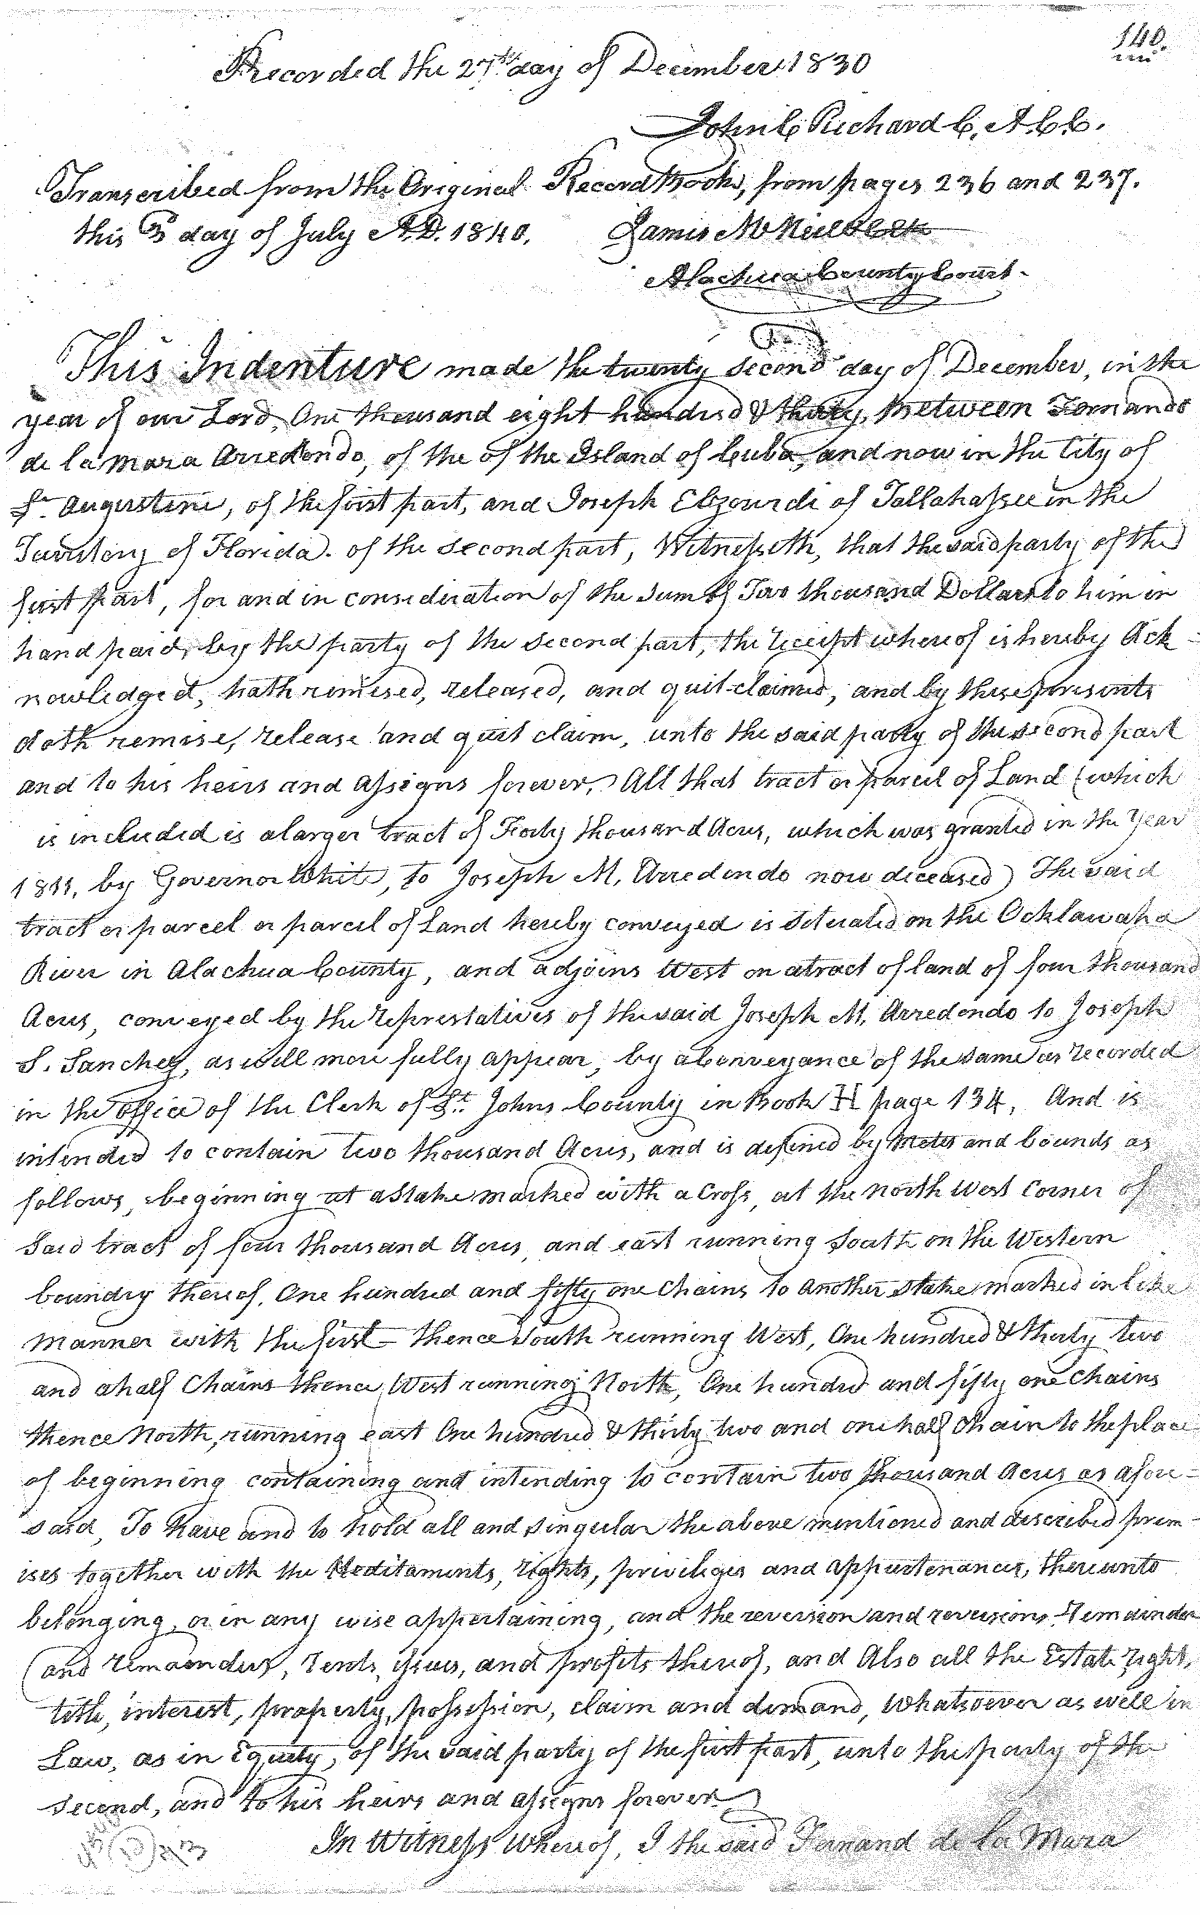 140.
Recorded the 27th day of December 1830
John C Richard C. A. C. C.
Transcribed from the Original Record Book, from pages 236 and 237.
this 3d day of July A.D. 1840. James McNeill Clk
Alachua County Court.
This Indenture made the twenty second day of December, in the
year of our Lord, One thousand eight hundred & thirty, Between Fernando
de la Maza Arredondo, of the of the Island of Cuba, and now in the City of
St. Augustine, of the first part, and Joseph Elzourdi of Tallahassee in the
Territory of Florida. of the second part, Witnesseth, that the said party of the
first part, for and in consideration of the sum of Two thousand Dollars to him in
hand paid, by the party of the second part, the receipt whereof is hereby Ack=
nowledged, hath remised, released, and quit-claimed, and by these presents
doth remise, release and quit claim, unto the said party of the second part
and to his heirs and assigns forever, All that tract or parcel of Land (which
is included is a larger tract of Forty thousand Acres, which was granted in the Year
1811, by Governor White, to Joseph M. Arredondo now deceased) The said
tract or parcel or parcel of Land hereby conveyed is situated on the Ocklawaha
River in Alachua County, and adjoins West on a tract of land of four thousand
Acres, conveyed by the represtatives of the said Joseph M. Arredondo to Joseph
S. Sanchez, as will more fully appear, by a Conveyance of the same as recorded
in the office of the Clerk of St. Johns County in Book H page 134, And is
intended to contain two thousand Acres, and is defined by Metes and bounds as
follows, beginning at a Stake marked with a Cross, at the North West Corner of
said tract of four thousand Acres, and east running South on the Western
boundry thereof, One hundred and fifty one Chains to another stake marked in like
manner with the first – thence South running West, One hundred & thirty two
and a half Chains thence, West running North, One hundred and fifty one Chains
thence North, running east One hundred & thirty two and one half Chain to the place
of beginning containing and intending to contain two thousand Acres as afore=
said, To have and to hold all and singular the above mentioned and described prem-
ises together with the Heditaments, rights, privileges and appurtenances, thereunto
belonging, or in any wise appertaining, and the reversion and reversions, remainder
and remainders, rents, issues, and profits thereof, and Also all the Estate right,
title, interest, property, possession, claim and demand, whatsoever as well in
Law, as in Equity, of the said party of the first part, unto the party of the
second, and to his heirs and assigns forever.
In Witness whereof, I the said Fernand de la Maza